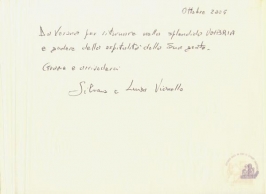 Ottobre 2015
Da Verona per ritornare nella splendida UMBRIA
e godere della ospitalità della Sua gente.
Grazie e arrivederci
Silvano e Luisa